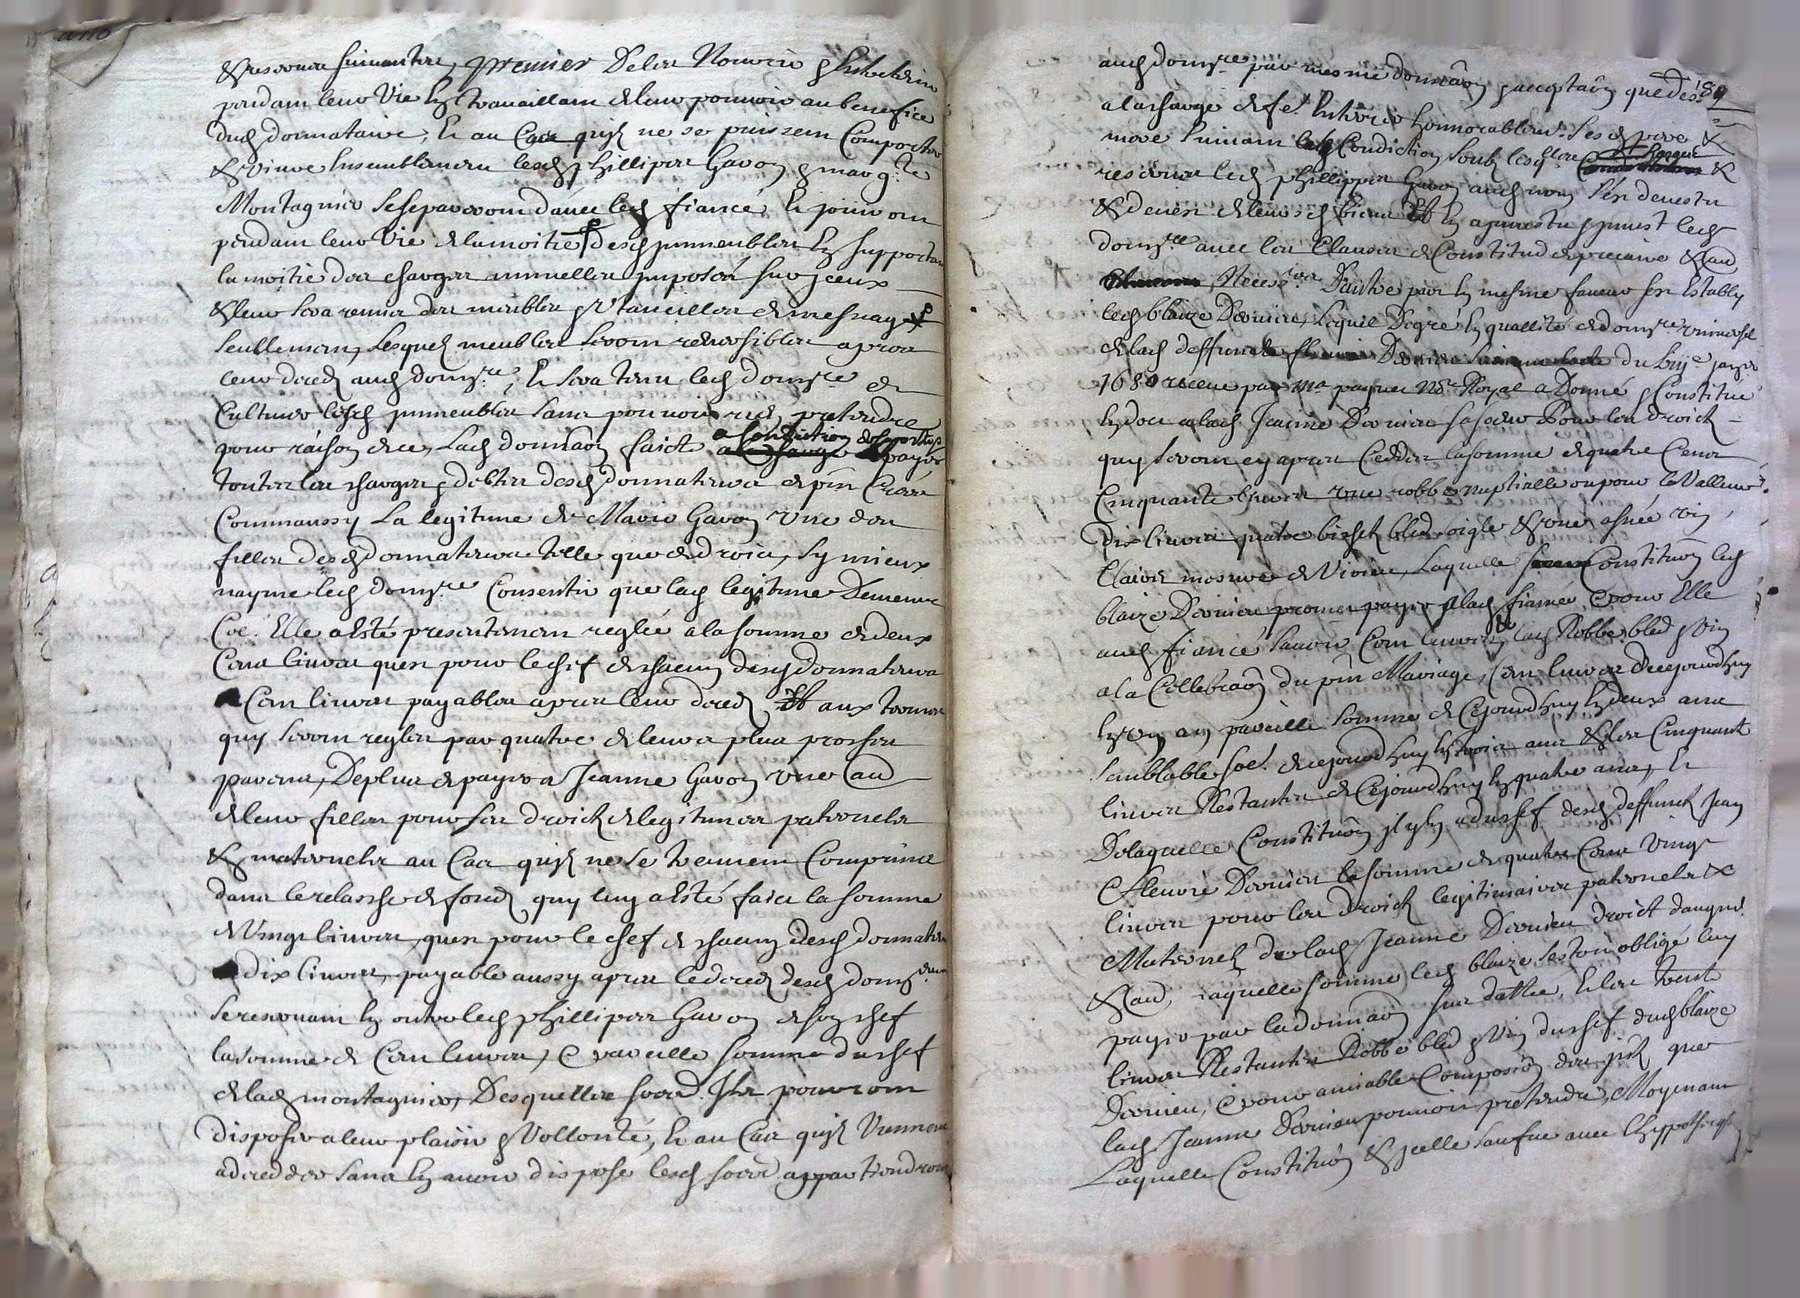 & reserves suivantes, premier De les Nourrir & Entretenir
pendant leur Vie En travaillant de leur pouvoir au benefice
dud donnataire, Et au Cas quilz ne se puissent Comporter
& vivre Ensemblement lesd phillippes Gavon & marg.te
Montagnier se separeront davec led fiancé, Et jouiront
pendant leur Vie de la moitié desd immeubles En supportant
la moitié des charges annuelles imposées sur iceux
& leur sera remis des meubles & Vtancilles de mesnage
seullement, Lesquelz meubles seront reversibles apres
leur decedz aud dom.re, Et sera tenu led dom.re de
Cultiver lesd immeubles sans pouvoir rien pretendre
pour raison de ce, Lad donnaôn faict a Condiction de
payer
toutes les charges & debtes desd donnateurs de pñt Creés
Comm aussy La legitime de Marie Gavon vne des
filles desd donnateurs telle que de droict, sy mieux
nayme led dom.re Consentir que lad legitime Demeure
Coe. Elle a Esté presentement reglée a la somme de deux
Cens livres quest pour le chef de chacun desd donnateurs
Cent livres payables apres leur decedz aux termes
quy seront regles par quatre de leurs plus proches
parens, De plus de payer a Jeanne Gavon vne au
de leur filles pour ses droictz de legitimes paternels
& maternels au Cas quilz ne se treuvent Comprins
dans le relaché de fondz quy luy a Esté faict la somme
de Vingt livres, quest pour le chef de chacun desd donnateurs
dix livres, payable aussy apres le decedz desd dom.
Se reservant En outre led phillippes Gavon de son chef
la somme de Cent livres, & pareille somme du chef
de lad montagnier, Desquelles sommes Ilz pourront
disposer a leur plaisir & Vollonté, Et au Cas quilz Viennent
a deceder sans En avoir disposé lesd sommes appartiendront
aud dom.re par mesme donnaôn & acceptaôn que dess.
189
a la charge de Entretenir honnorablem.t Sesd pere &
mere suivant les Condiction soubz lesqlles &
reserves led phillippes Gavon aud nom sest devestu
& demis de leursd biens Et En a investu & invest led
dom.re avec les Clauses de Constitud de precaire & aud
Necess.res Dautre part En mesme faveur sest Estably
led blaize Dernier, Lequel De gré En quallité de dom.re vniversel
de lad deffuncte Dernier du Buy.e janvier
1689 receu par m.e payen No.re Royal a Donné & Constitué
En dot a lad Jeanne Dernier sa soeur Pour les droictz
quy seront cy apres Ceddes la somme de quatre Cens
Cinquante livres vne robbe nuptialle ou pour la Valleur
Dix livres quatre bichetz bled seigle & vne asnée vin
Clairet mesure de Vienne, Laquelle Constitutiôn led
blaize Dernier promet payer a lad fiancée & pour Elle
aud fiancé savoir Cent livres lad Robbe bled & Vin
a la Cellebraôn du pñt Mariage, Cent livres de cejourdhuy
En vn an pareille somme de Cejourdhuy En deux ans
semblable soe. de cejourdhuy En trois ans & les Cinquante
livres Restantes de Cejourdhuy En quatre ans, Et
De laquelle Constitutiôn il y en a du chef desd deffunctz Jean
& Fleurie Dernier la somme de quatre Cens Vingt
livres pour les droictz legitimaires paternels &
Maternelz de lad Jeanne Dernier droict daugm.t
& aut. laquelle somme led blaize sestoit obligé luy
payer par la donnaôn sus dattée, Et les trente
livres Restantes Robbe bled & Vin du chef dud blaize
Dernier, & pour amiable Composiôn des ditz que
lad Jeanne Dernier pouvoit pretendre, Moyenant
Laquelle Constitutiôn & jcelle saufve avec Ehyppotheque